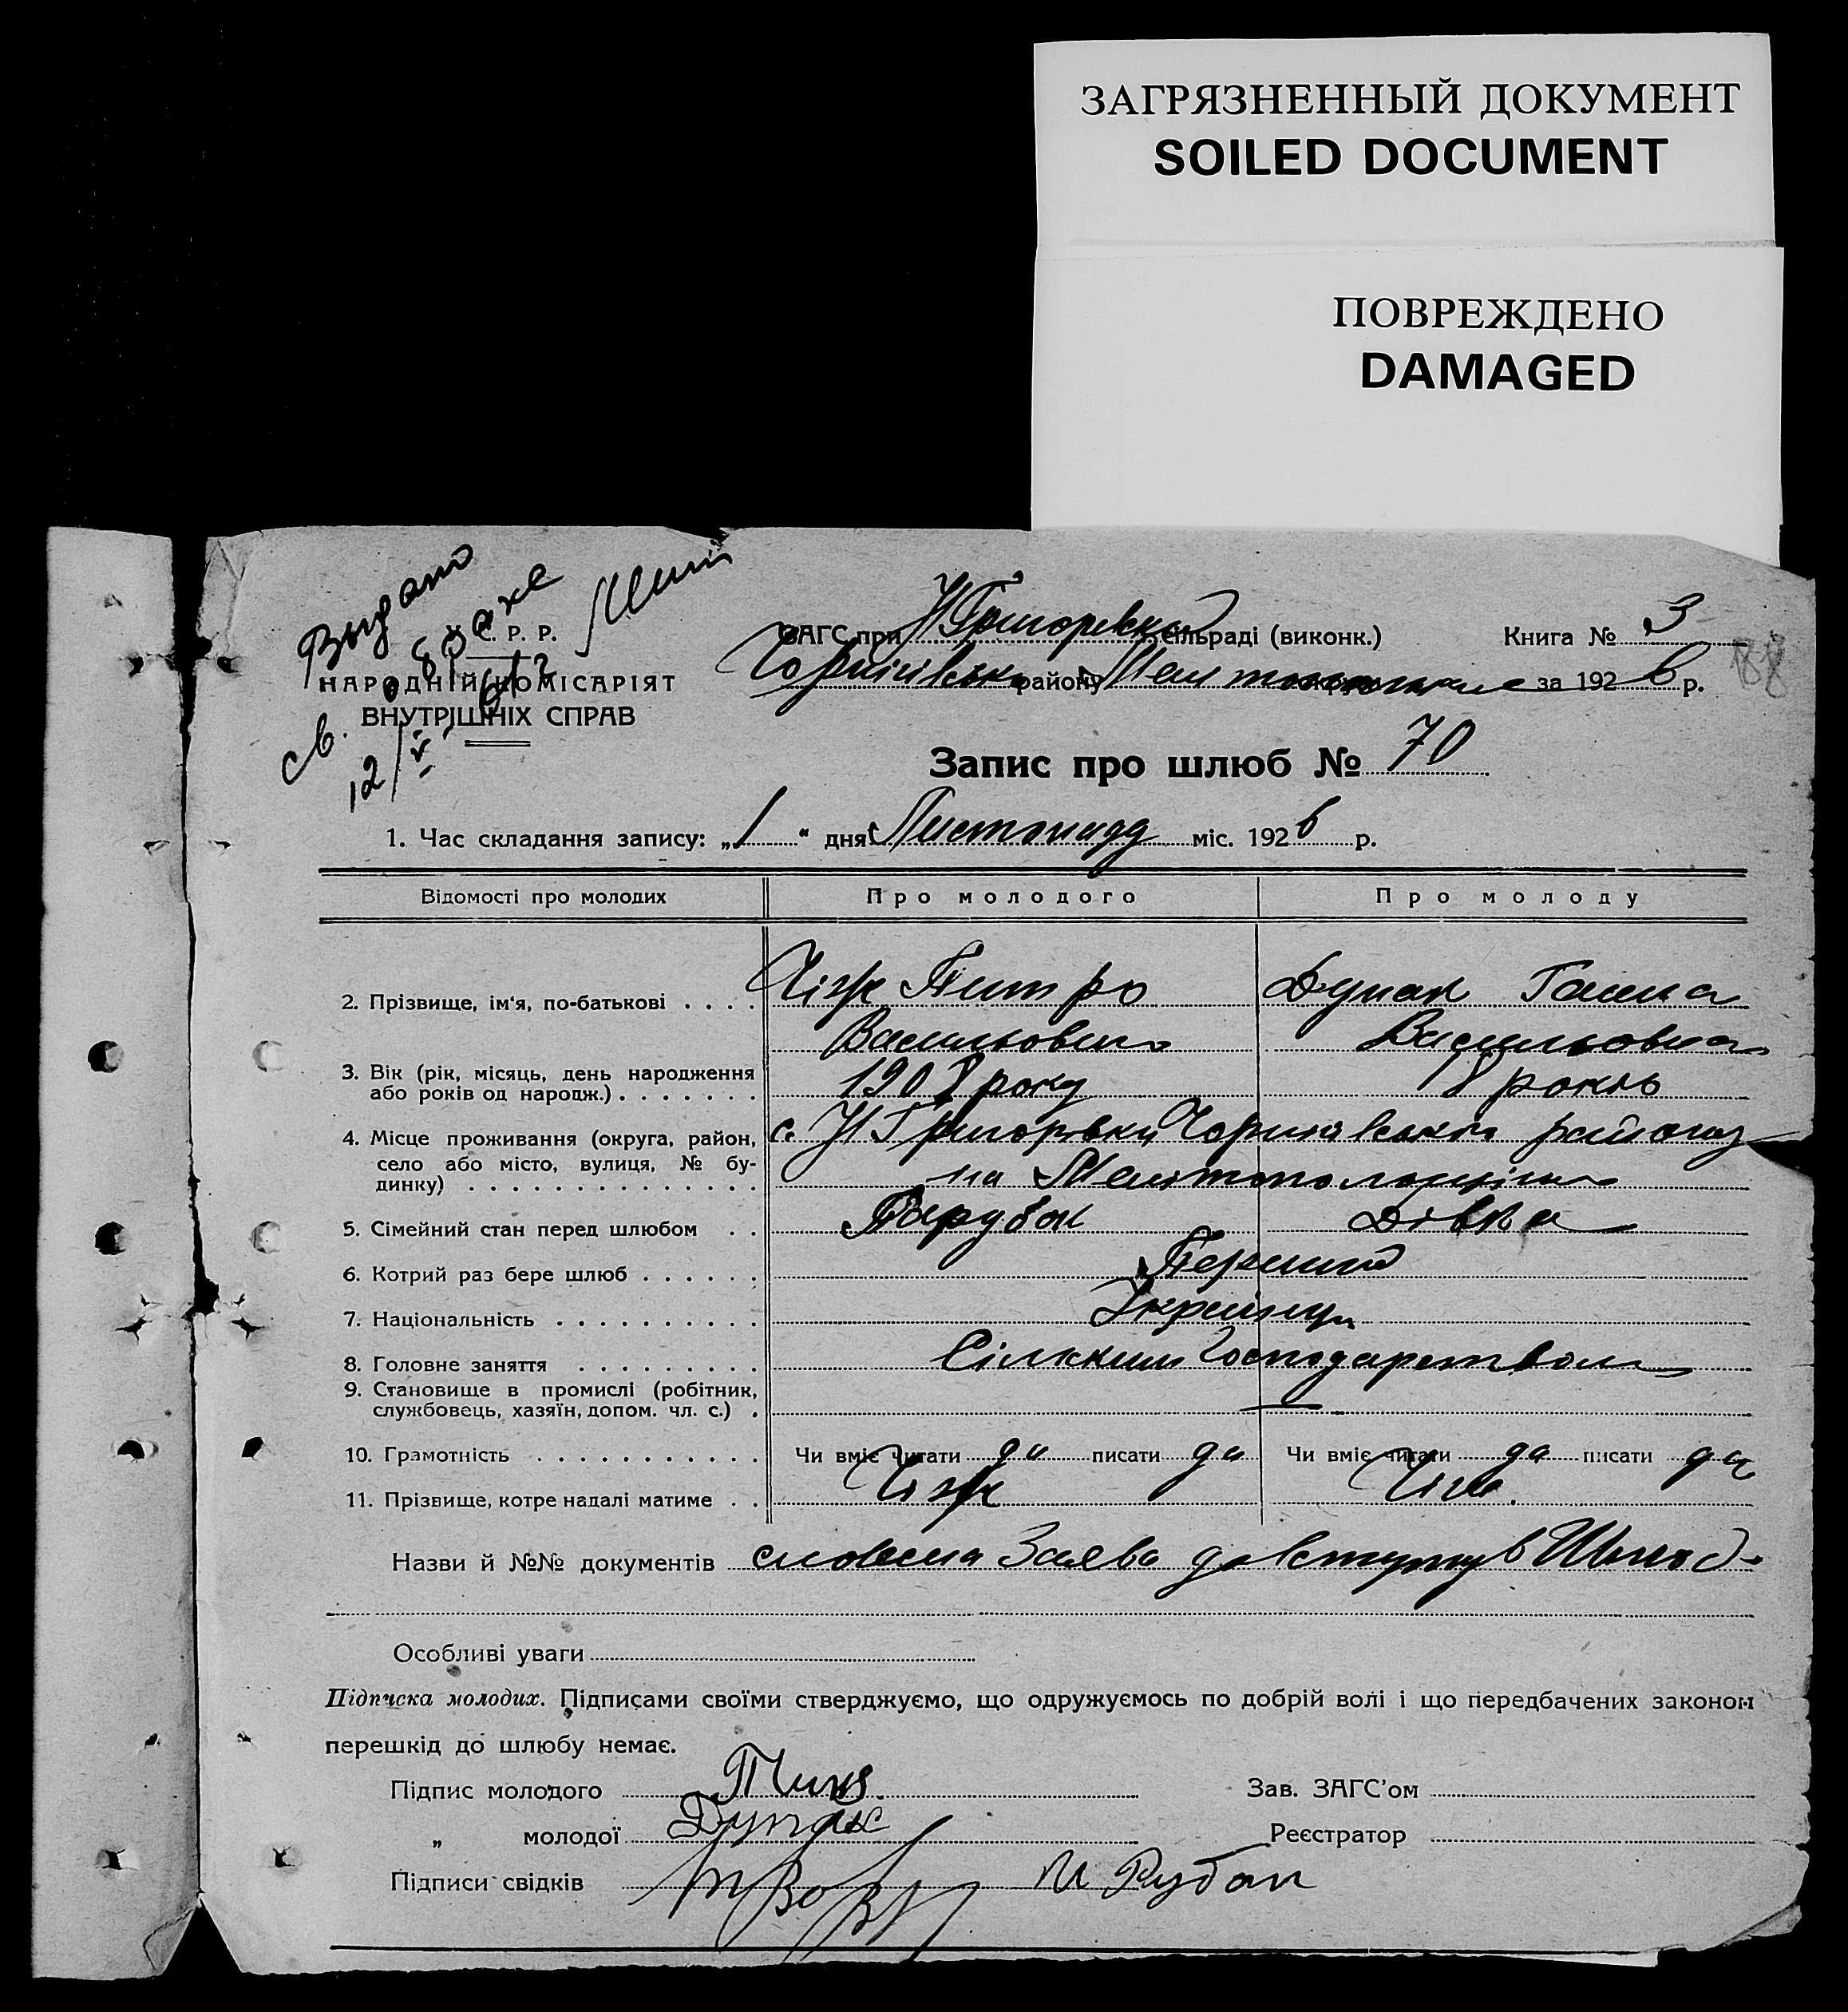 ЗАГРЯЗНЕННЫЙ ДОКУМЕНТ
SOILED DOCUMENT
ПОВРЕЖДЕНО
DAMAGED
Выдано
св. о браке
12/V
У. С. Р. Р.
НАРОДНІЙ КОМІСАРІЯТ
ВНУТРІШНІХ СПРАВ
ЗАГС при сільраді (виконк.) Книга № 3
району за 1926 р.
88
Запис про шлюб № 70
1. Час складання запису: „1“ дня Листопада міс. 1926 р.
Відомості про молодих Про молодого Про молоду
2. Прізвище, ім'я, по-батькові . . . . Чіж Питро Дупак Ганна
Васильович Васильовна
3. Вік (рік, місяць, день народження
або років од народж.) . . . . . . . 1908 року 18 років
4. Місце проживання (округа, район, с. Н Григорівки Чорнігівського району
село або місто, вулиця, № бу-
динку) . . . . . . . . . . . . . . на Мелітопольщіни
5. Сімейний стан перед шлюбом . . Парубок Дівка
6. Котрий раз бере шлюб . . . . . . Перший
7. Національність . . . . . . . . . . Українці
8. Головне заняття . . . . . . . . . Сільским Господарством
9. Становище в промислі (робітник,
службовець, хазяїн, допом. чл. с.) . —
10. Грамотність . . . . . . . . . . . Чи вміє читати да писати да Чи вміє читати да писати да
11. Прізвище, котре надалі матиме . . Чіж Чіж.
Назви й №№ документів словесна Заява до вступу в Шлюб
Особливі уваги
Підписка молодих. Підписами своїми стверджуємо, що одружуємось по добрій волі і що передбачених законом
перешкід до шлюбу немає.
Підпис молодого Зав. ЗАГС'ом
„ молодої Дупак Реєстратор
Підписи свідків И Рубан